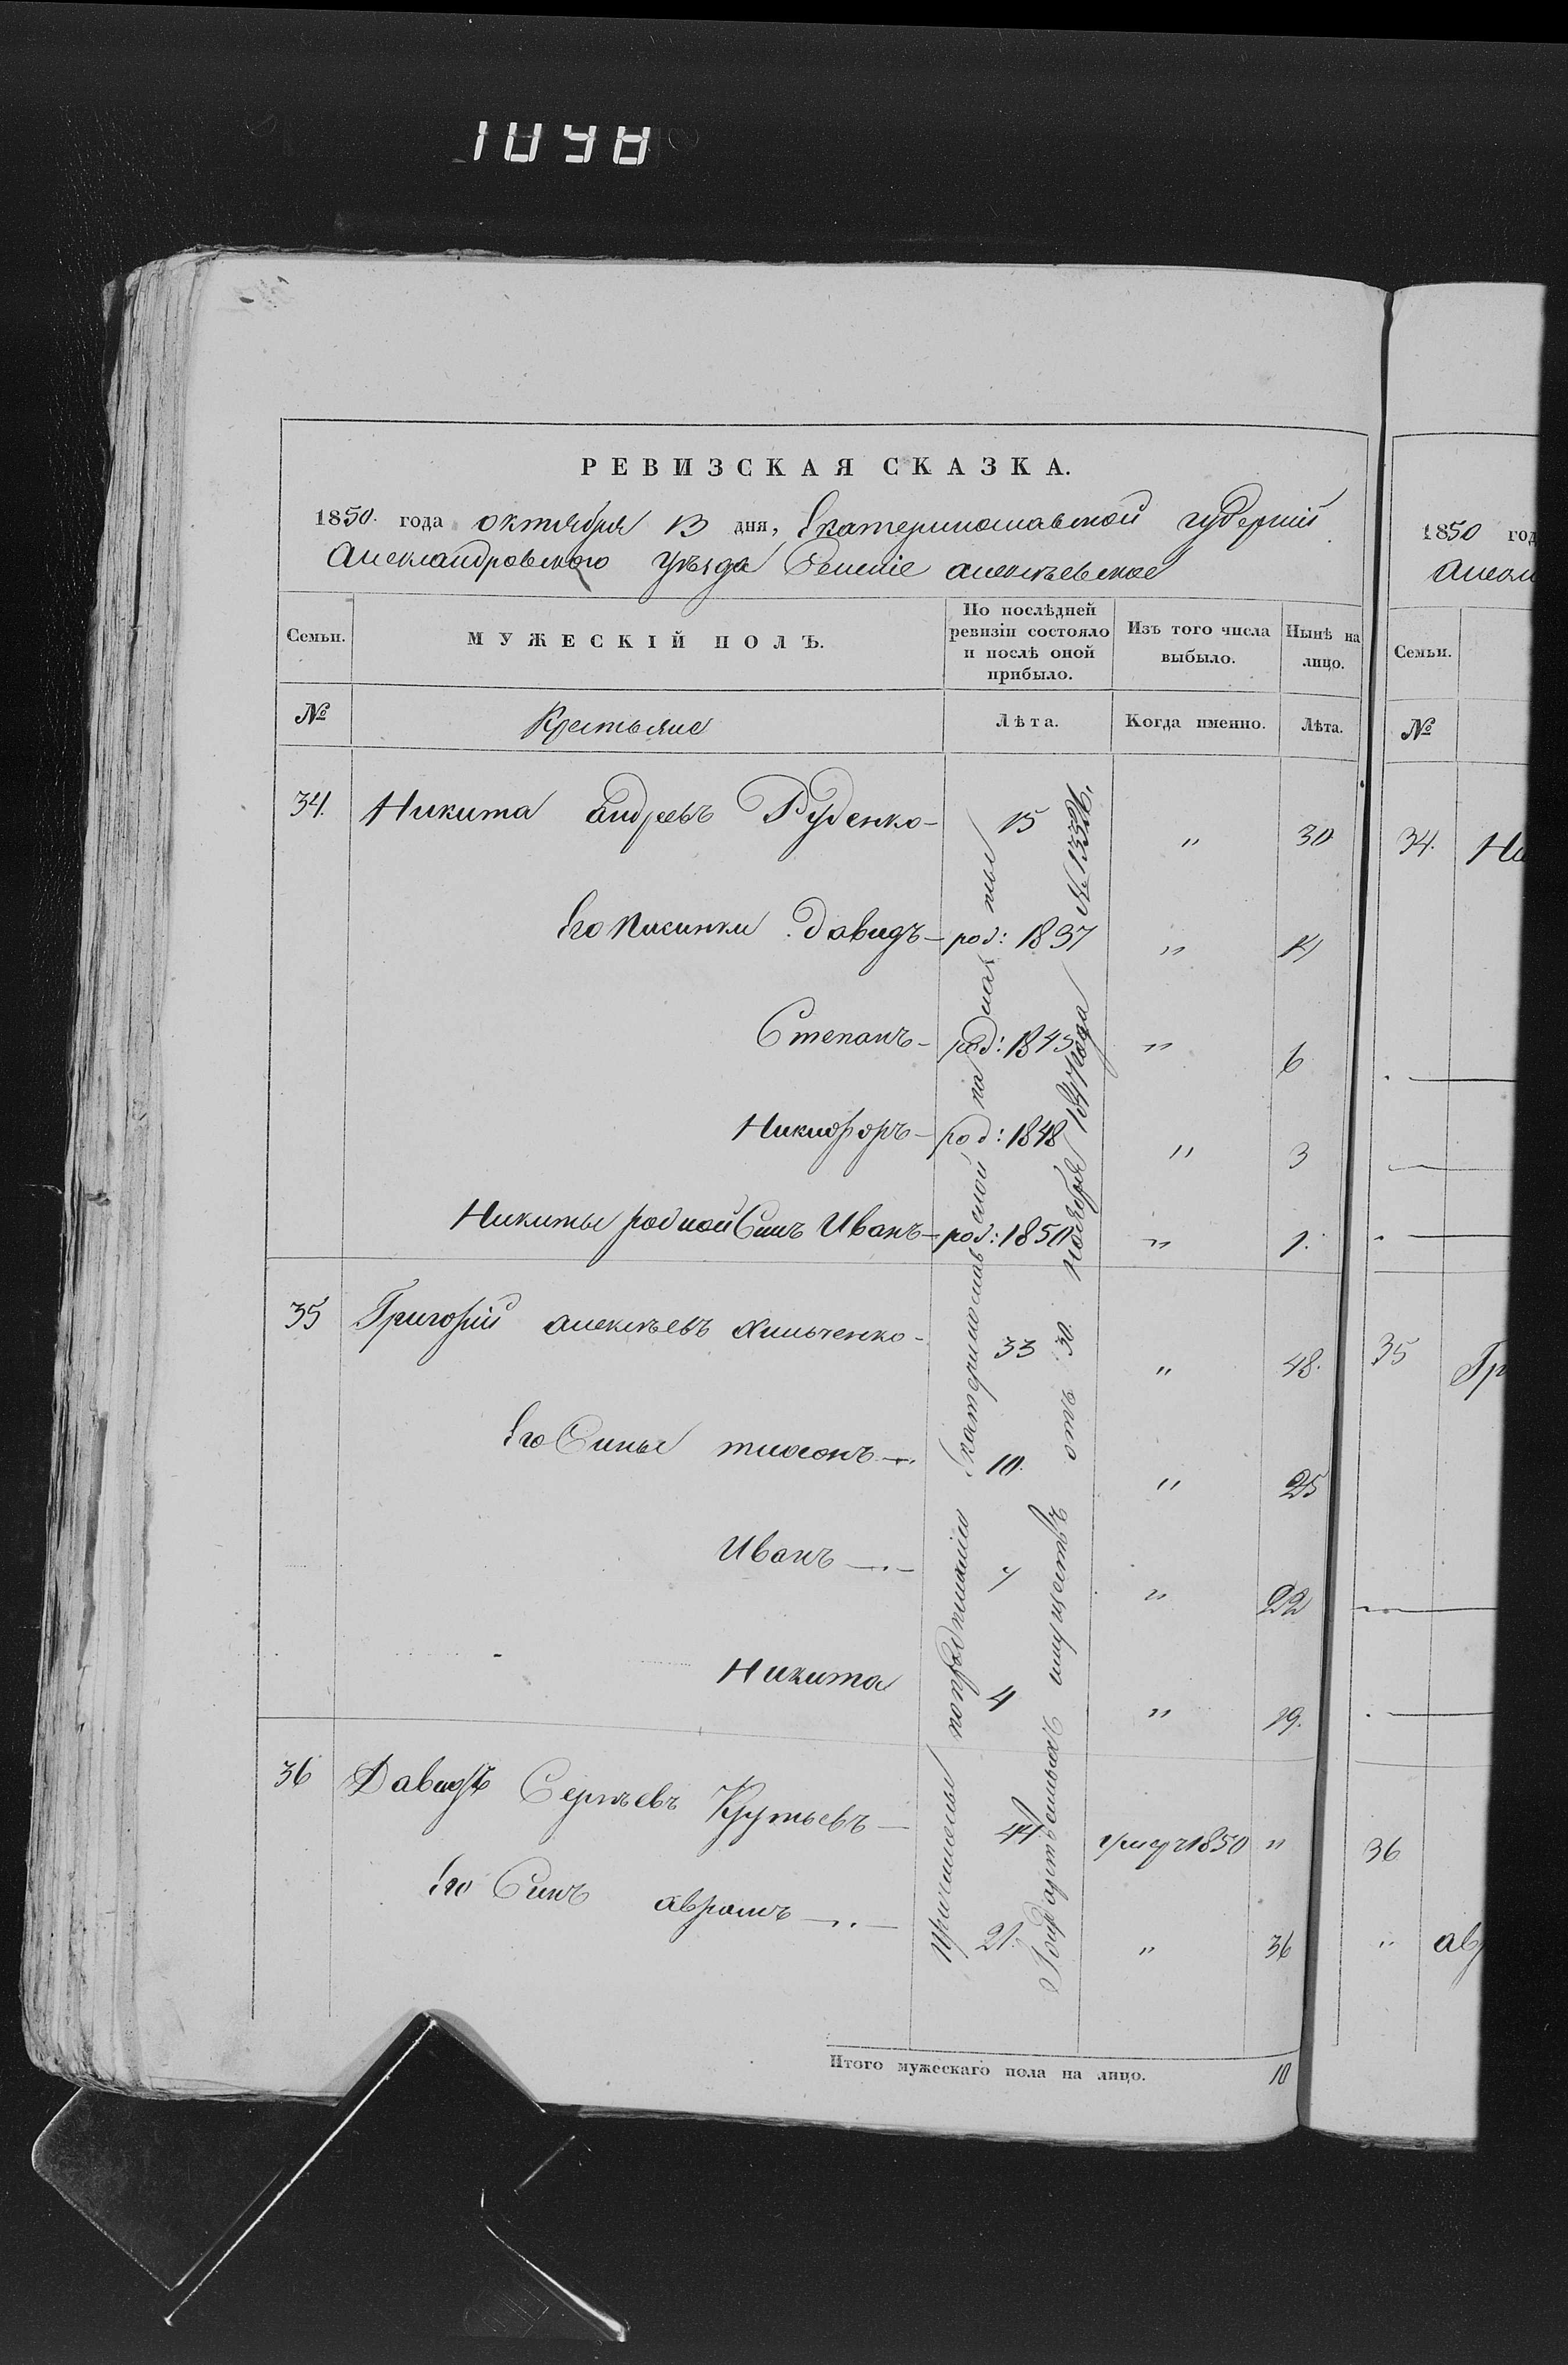 1098
РЕВИЗСКАЯ СКАЗКА.
1850. года октября 13 дня, Екатеринославской губерніи
Александровскаго уѣзда Селеніе алексѣевское
Семьи.
МУЖЕСКІЙ ПОЛЪ.
По послѣдней ревизіи состояло и послѣ оной прибыло.
Изъ того числа выбыло.
Нынѣ на лицо.
№
Крестьяне
Лѣта.
Когда именно.
Лѣта.
34. Никита андреевъ Руденко- 15 " 30
Его Пасинки Давидъ- род: 1837 " 14
Степанъ- род: 1845 " 6
Никифоръ- род: 1848 " 3
Никиты родной Синъ Иванъ- род: 1850 " 1.
35 Григорій алексѣевъ Хильченко- 33 " 48.
Его Сины тихонъ 10. " 25
Иванъ 7 " 22
Никита 4 " 19.
36 Давидъ Сергѣевъ Крутьевъ- 44 1850 "
Его Синъ аврамъ 21. " 36
Причислены по предписанію Екатеринославской палаты
Государственныхъ имуществъ отъ 30. ноября года № 13326.
Итого мужескаго пола на лицо. 10
1850 год
Семьи.
№
34. Ни
35 Гр
36
" ав